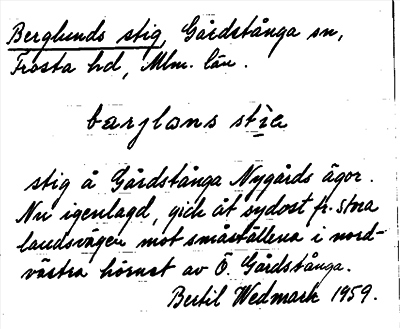 Berglunds stig, Gårdstånga sn,
Frosta hd, Mlm. län.
barglans stia
stig å Gårdstånga Nygårds ägor.
Nu igenlagd, gick åt sydost fr. stora
landsvägen mot småställena i nord-
västra hörnet av Ö. Gårdstånga.
Bertil Wedmark 1959.